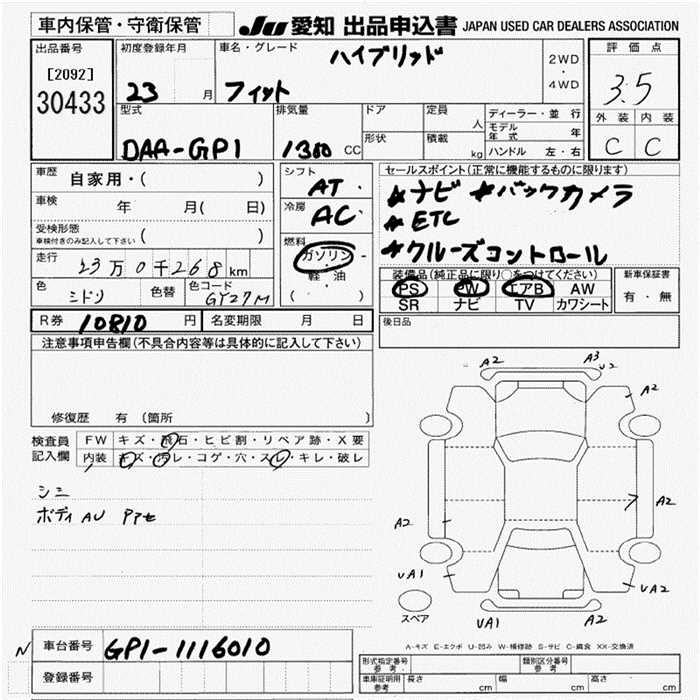 車内保管・守衛保管
JU 愛知 出品申込書 JAPAN USED CAR DEALERS ASSOCIATION
出品番号 初度登録年月 車名・グレード ハイブリッド 2WD・4WD 評価点
[2092]
30433 23 月 フィット 3.5
型式 排気量 ドア 定員 人 ディーラー・並行 外装 内装
形状 積載 kg モデル年式 年
DAA-GP1 1300 CC ハンドル 左・右 C C
車歴 自家用・( ) シフト AT・ セールスポイント(正常に機能するものに限ります)
車検 年 月( 日) 冷房 AC・ *ナビ *バックカメラ
受検形態 ( ) *ETC
車検付きのみ記入して下さい 燃料 ガソリン *クルーズコントロール
走行 23万0千268km 軽・油 装備品(純正品に限り○をつけてください) 新車保証書
色 ミドリ 色替 色コード GY27M (・) PS PW エアB AW 有・無
SR ナビ TV カワシート
R券 10810 円 名変期限 月 日 後日品
注意事項申告欄(不具合内容等は具体的に記入して下さい)
A2 A3 U2
A2
修復歴 有 (箇所 )
検査員 FW キズ・飛石・ヒビ割・リペア跡・X要
記入欄 内装 キズ・汚レ・コゲ・穴・スレ・キレ・破レ
シミ
ボディAU アアセ
A2 A2
UA1 UA2
スペア UA1 A2
A-キズ E-エクボ U-凹み W-補修跡 S-サビ C-腐食 XX-交換済
N 車台番号 GP1-1116010
登録番号 形式指定番号 参考 類別区分番号 参考
車庫証明用 参考 長さ cm 幅 cm 高さ cm